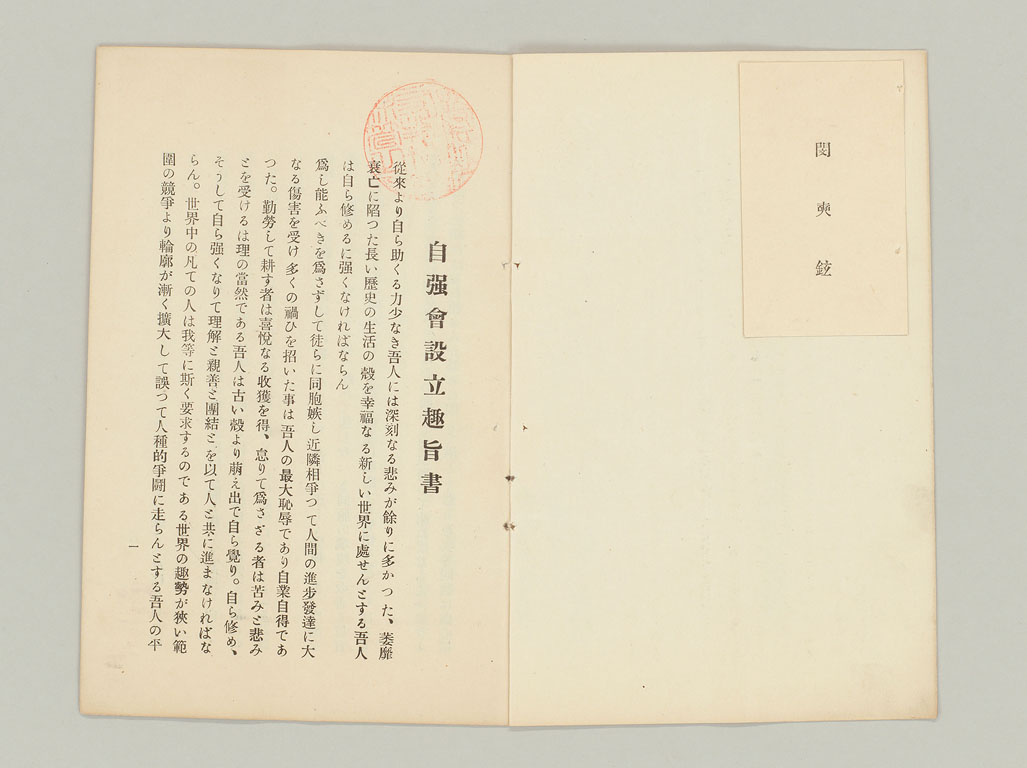 閔奭鉉
自强會設立趣旨書
從來より自ら助くる力少なき吾人には深刻なる悲みが餘りに多かつた、萎靡
衰亡に陷つた長い歷史の生活の殼を幸福なる新しい世界に處せんとする吾人
は自ら修めるに强くなければならん
爲し能ふべきを爲さずして徒らに同胞嫉し近隣相爭つて人間の進步發達に大
なる傷害を受け多くの禍ひを招いた事は吾人の最大恥辱であり自業自得であ
つた。勤勞して耕す者は喜悅なる收獲を得、怠りて爲さざる者は苦みと悲み
とを受けるは理の當然である吾人は古い殼より萠え出で自ら覺り。自ら修め、
そうして自ら强くなりて理解と親善と團結とを以て人と共に進まなければな
らん。世界中の凡ての人は我等に斯く要求するのである世界の趣勢が狹い範
圍の競爭より輪廓が漸く擴大して誤つて人種的爭鬪に走らんとする吾人の平
一